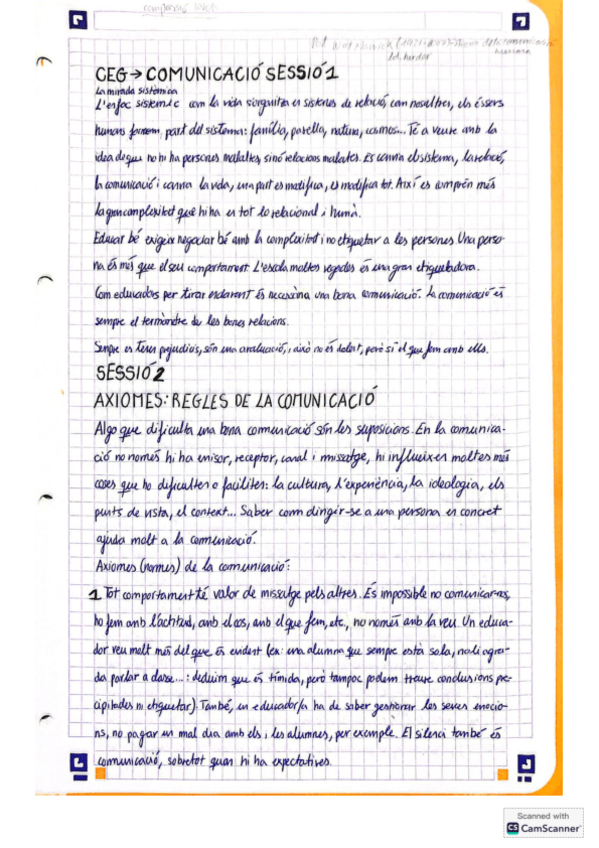 CEG → COMUNICACIÓ SESSIÓ 1
La mirada sistèmica
L'enfoc sistèmic com la vida s'organitza en sistemes de relació, com nosaltres, els éssers
humans formem part del sistema: família, parella, natura, cosmos... Té a veure amb la
idea de que no hi ha persones malaltes, sinó relacions malaltes. Es canvia el sistema, la relació,
la comunicació i canvia la vida, una part es modifica, es modifica tot. Així es comprèn més
la gran complexitat que hi ha en tot lo relacional i humà.
Educar bé exigeix negociar bé amb la complexitat i no etiquetar a les persones. Una perso-
na és més que el seu comportament. L'escola moltes vegades és una gran etiquetadora.
Com educadors per tirar endavant és necessària una bona comunicació. La comunicació és
sempre el termòmetre de les bones relacions.
Sempre es tenen prejudicis, són una avaluació, i això no és dolent, però sí el que fem amb ells.
SESSIÓ 2
AXIOMES: REGLES DE LA COMUNICACIÓ
Algo que dificulta una bona comunicació són les suposicions. En la comunica-
ció no només hi ha emisor, receptor, canal i missatge, hi influeixen moltes més
coses que ho dificulten o faciliten: la cultura, l'experiència, la ideologia, els
punts de vista, el context... Saber com dirigir-se a una persona en concret
ajuda molt a la comunicació.
Axiomes (normes) de la comunicació:
1 Tot comportament té valor de missatge pels altres. És impossible no comunicar-nos,
ho fem amb l'actitud, amb el cos, amb el que fem, etc., no només amb la veu. Un educa-
dor veu molt més del que és evident (ex: una alumna que sempre està sola, no li agra-
da parlar a classe...: deduim que és tímida, però tampoc podem treure conclusions pre-
cipitades ni etiquetar). També, un educador/a ha de saber gestionar les seves emocio-
ns, no pagar un mal dia amb els i les alumnes, per exemple. El silenci també és
comunicació, sobretot quan hi ha expectatives.
Scanned with
CS CamScanner